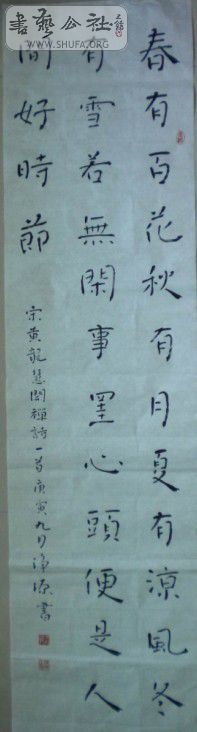 書藝公社
WWW.SHUFA.ORG
春有百花秋有月夏有涼風冬
有雪若無閑事罣心頭便是人
間好時節
宗黄龍慧開禪詩一首庚寅九月淨源書